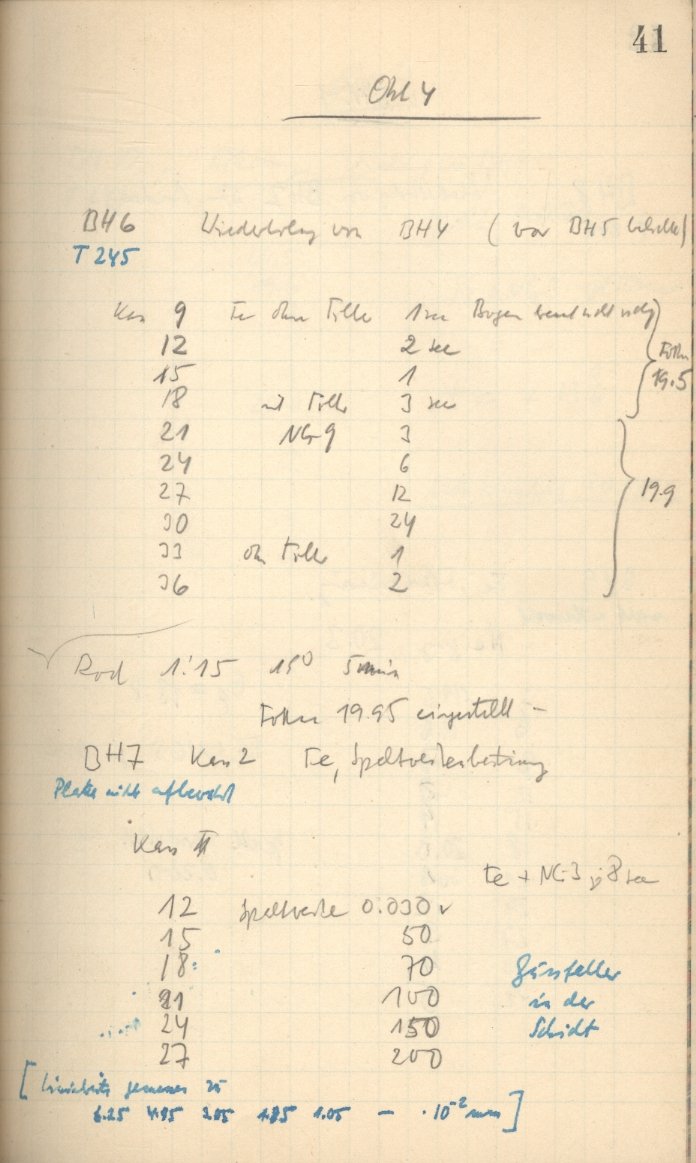 41
4
BH6 Wiederholung von BH4 (vor BH5 belichtet)
T 245
Kass 9 Fe ohne Filter 1 sec Bogen brennt nicht ruhig
12 2 sec
15 1
19.5
18 mit Filter 3 sec
21 NG 9 3
24 6
27 12
19.9
30 24
33 ohne Filter 1
36 2
Rod 1:15 15° 5 min
Fokus 19.95 eingestellt -
BH7 Kass 2 Fe, Spaltweitenbestimmung
Platte nicht aufbewahrt
Kass II
Fe + NG 3 je 8 sec
12 Spaltweite 0.030
15 50
18 70
21 100
24 150
27 200
in der
Schicht
[ Linienbreite gemessen zu
6.25 4.95 1.85 1.05 - · 10⁻² mm ]